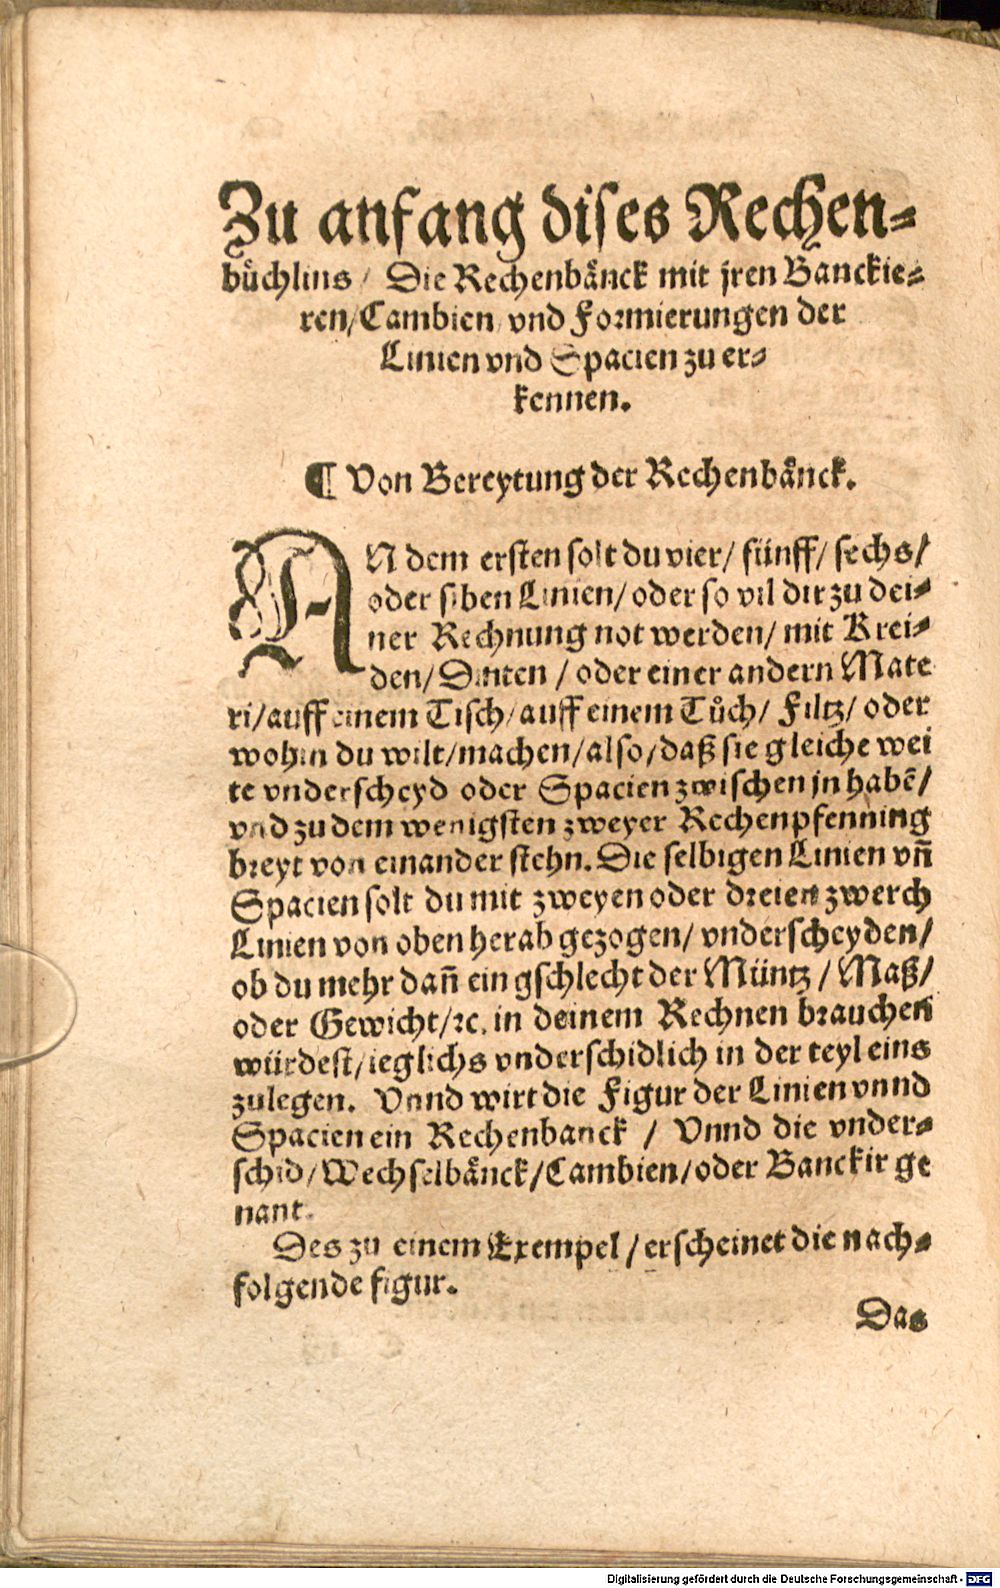 Zu anfang dises Rechen⸗
bůchlins / Die Rechenbånck mit jren Banckie⸗
ren/Cambien/vnd Formierungen der
Linien vnd Spacien zu er⸗
kennen.
¶ Von Bereytung der Rechenbånck.
AN dem ersten solt du vier/ fünff/ sechs/
oder siben Linien/ oder so vil dir zu dei⸗
ner Rechnung not werden/ mit Krei⸗
den/ Dinten / oder einer andern Mate
ri/auff einem Tisch/auff einem Tůch/ Filtz/ oder
wohin du wilt/machen/also/daß sie gleiche wei
te vnderscheyd oder Spacien zwischen jn habẽ/
vnd zu dem wenigsten zweyer Rechenpfenning
breyt von einander stehn. Die selbigen Linien vñ
Spacien solt du mit zweyen oder dreien zwerch
Linien von oben herab gezogen/ vnderscheyden/
ob du mehr dañ ein gschlecht der Müntz / Maß/
oder Gewicht/ꝛc. in deinem Rechnen brauchen
würdest/ieglichs vnderschidlich in der teyl eins
zulegen. Vnnd wirt die Figur der Linien vnnd
Spacien ein Rechenbanck / Vnnd die vnder⸗
schid/Wechselbånck/Cambien/oder Banckir ge
nant.
Des zu einem Exempel / erscheinet die nach⸗
folgende figur.
Das
Digitalisierung gefördert durch die Deutsche Forschungsgemeinschaft - DFG